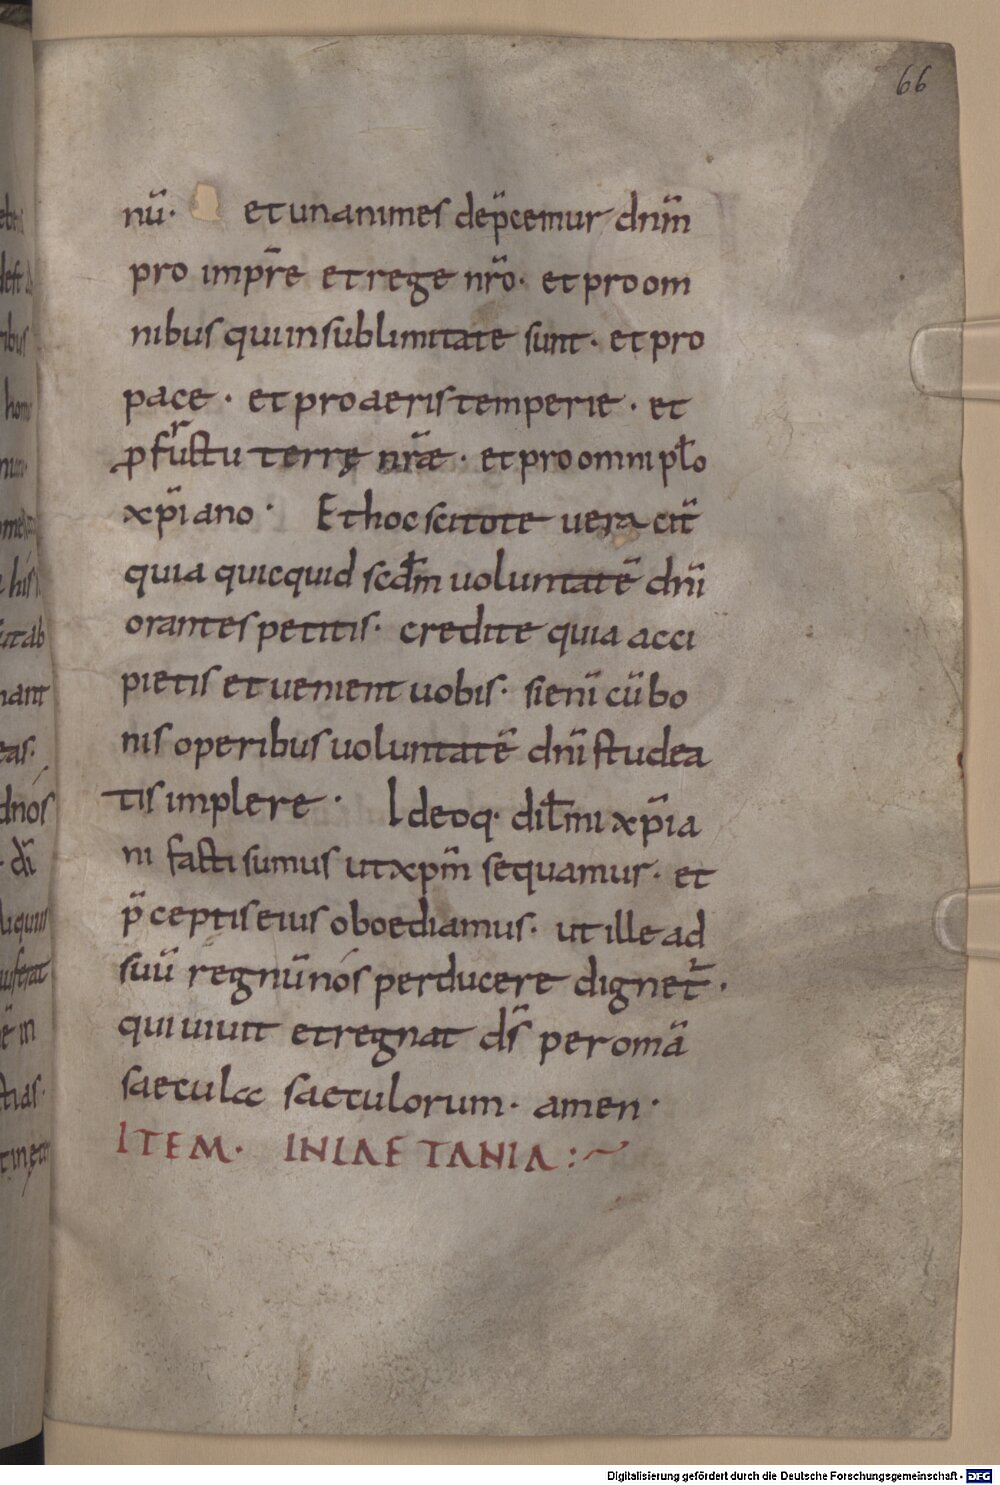 66
nū· et unanimes dep̄cemur dnm̄
pro impr̄e et rege nr̄o· et pro om
nibus qui in sublimitate sunt· et pro
pace· et pro aeris temperie· et
ꝓ fructu terrę nr̄æ· et pro omni pło
xp̄iano· Et hoc scitote ueraciť
quia quicquid scđm uoluntatē dnī
orantes petitis· credite quia acci
pietis et uenient uobis· si enī cū bo
nis operibus uoluntatē dnī studea
tis implere· Ideoq· dił̄mi xp̄ia
ni facti sumus ut xpm̄ sequamus· et
p̄ceptis eius oboediamus· ut ille ad
suū regnū nós perducere digneť·
qui uiuit et regnat ds̄ per omā
saecula saeculorum· amen·
ITEM· IN LAETANIA:~
Digitalisierung gefördert durch die Deutsche Forschungsgemeinschaft - DFG